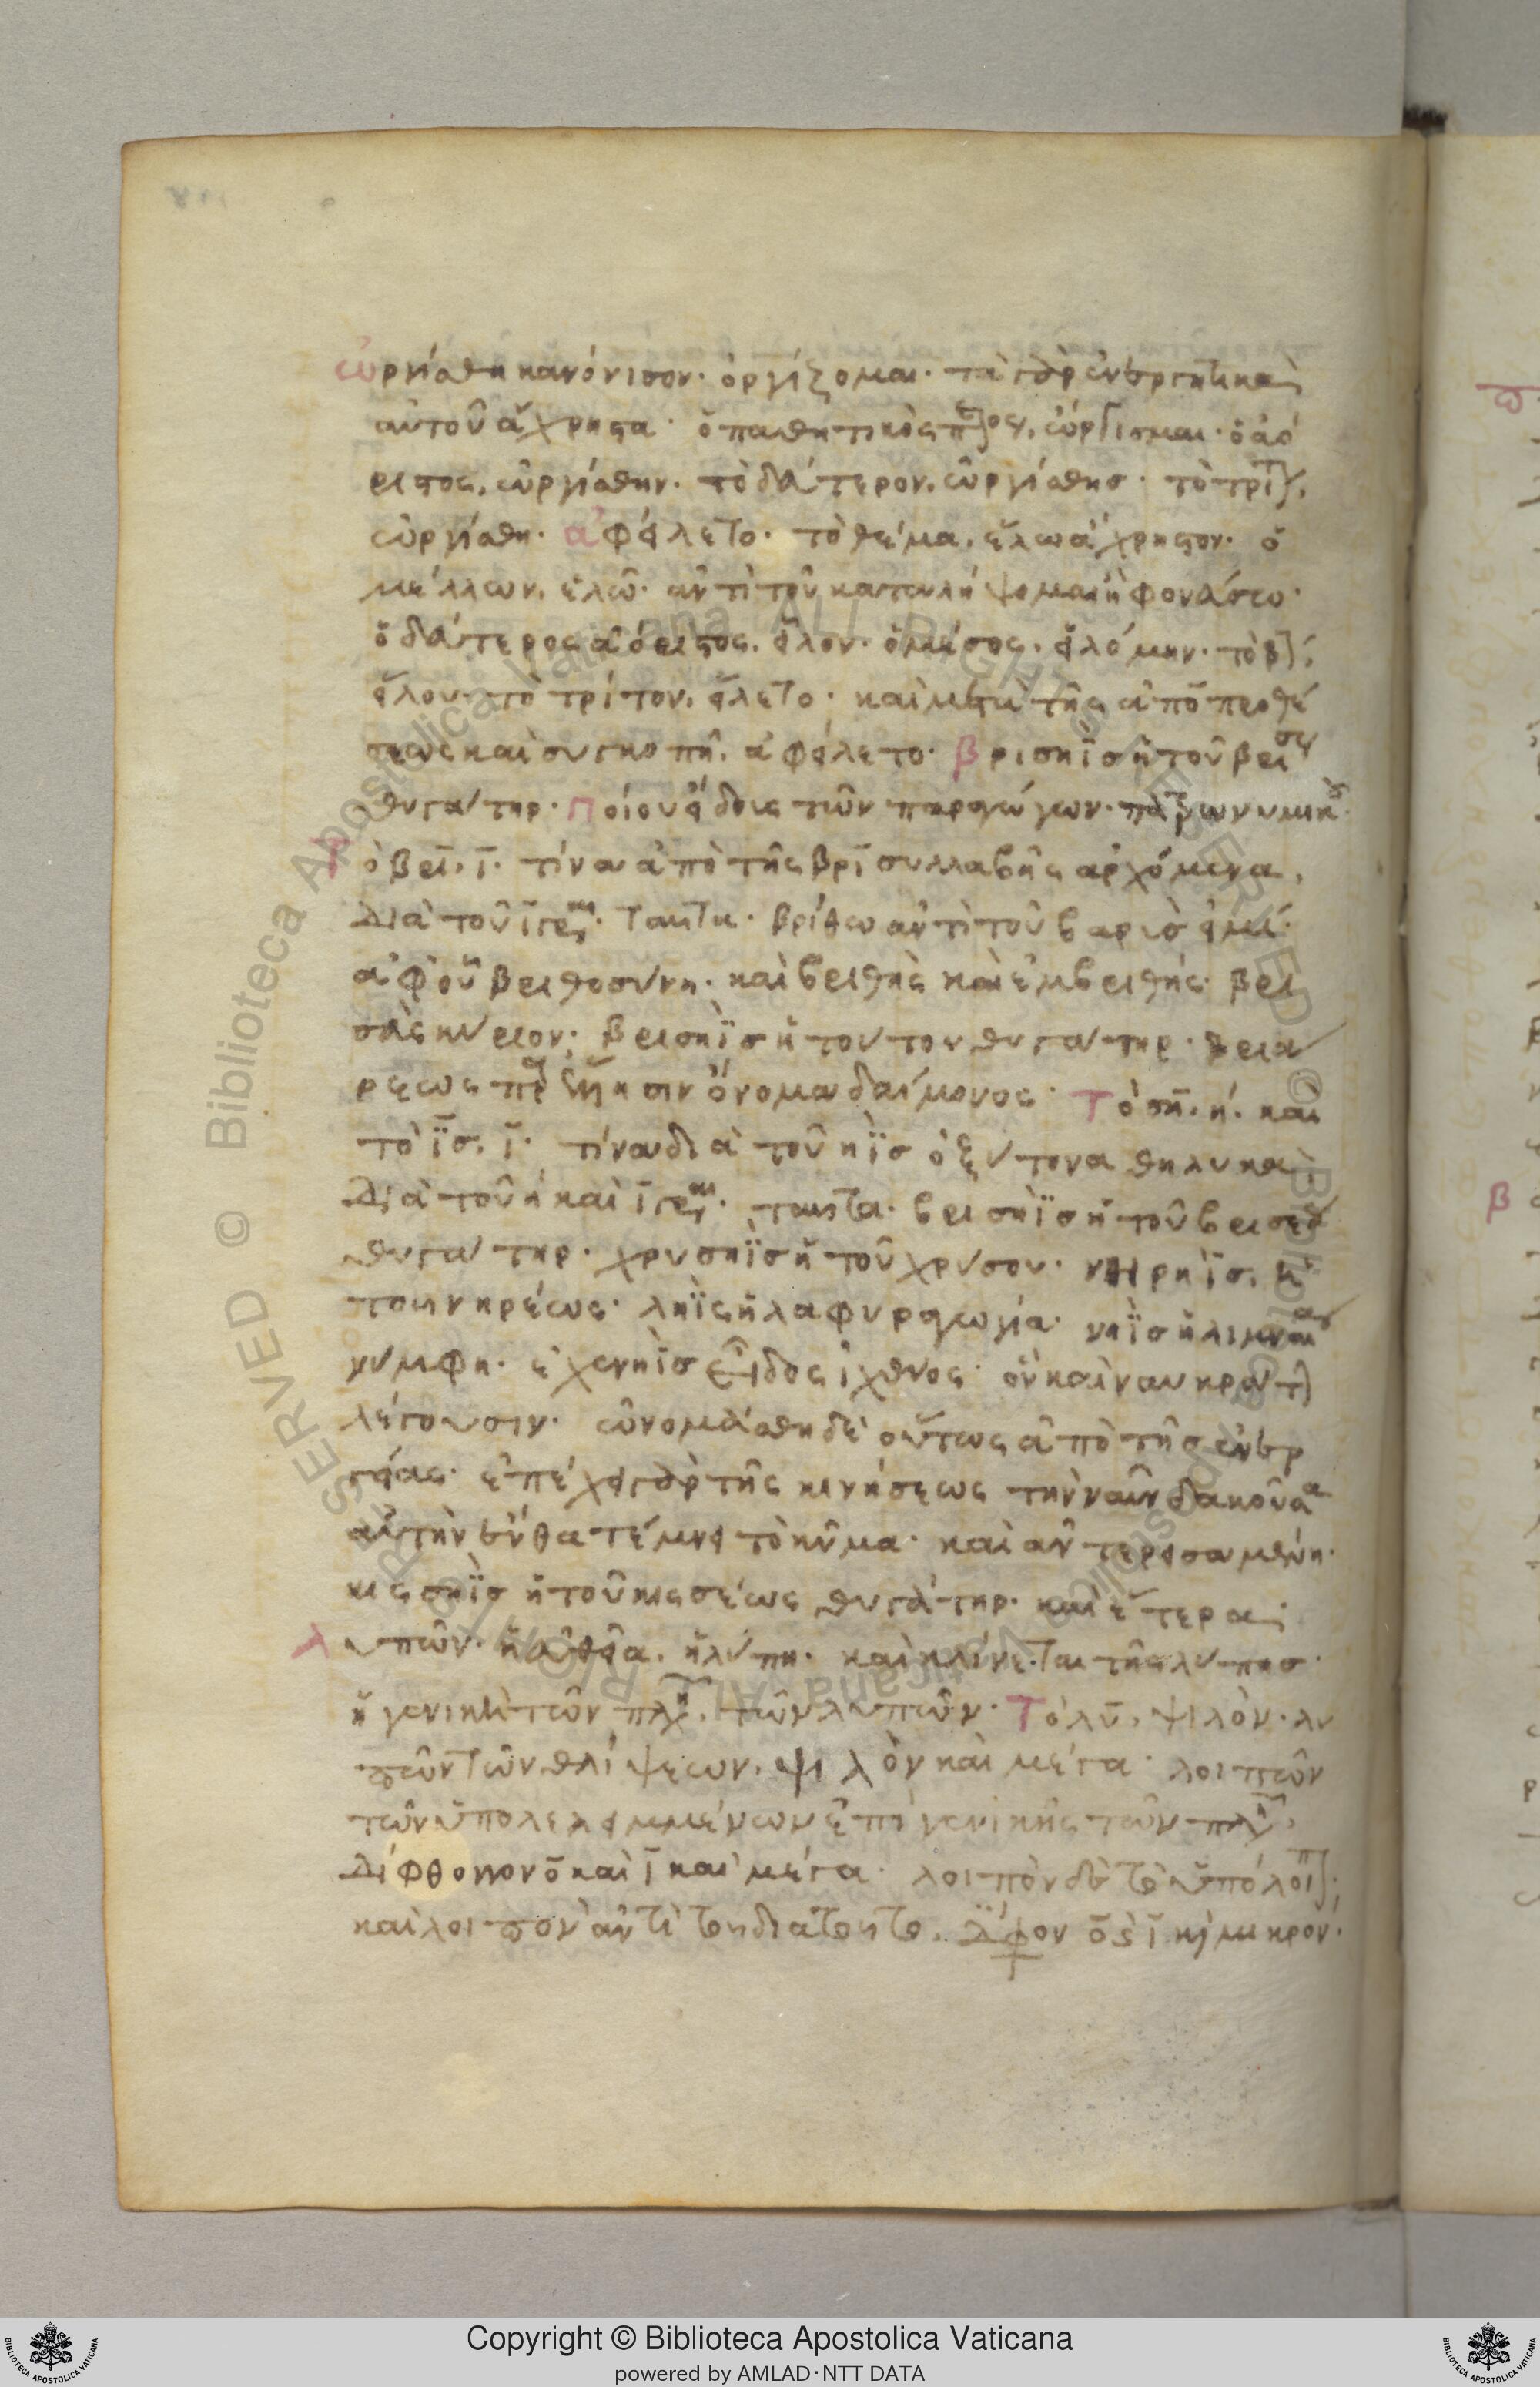 ὠργίσθη κανόνισον· ὀργίζομαι· τὰ γὰρ ἐνεργητικὰ
αὐτοῦ ἄχρηστα· ὁ παθητικὸς ὤργισμαι· ὁ ἀό
ριστος, ὠργίσθην· τὸ δεύτερον, ὠργίσθησ· τὸ τρίτ,
ὠργίσθη· ἀφείλετο· τὸ θέμα, ἕλω ἄχρηστον· ὁ
μέλλων, ἑλῶ· ἀντὶ τοῦ καταλήψομαι ἢ φονεύσω·
ὁ δεύτερος ἀόριστος, εἷλον· ὁ μέσος, εἱλόμην· τὸ β,
εἵλου· τὸ τρίτον, εἵλετο· καὶ μετὰ τῆς ἀπὸ προθέ
σεως καὶ συγκοπῆ, ἀφείλετο· βρισηῒσ ἡ τοῦ βρισ
θυγάτηρ· Ποῖον εἶδος τῶν παραγώγων·
Τὸ βρῑ, ῑ· τίνα ἀπὸ τῆς βρῑ συλλαβῆς ἀρχόμενα,
Διὰ τοῦ ῑ ταῦτα· βρίθω ἀντὶ τοῦ βαρὺσ εἰμί·
ἀφ' οὗ βριθοσύνη· καὶ βριθὴς καὶ ἐμβριθής· βρι
σεὺς κύριον· βρισηῒσ ἡ τούτου θυγάτηρ· βρια
ρεως ὄνομα δαίμονος· Τὸ ση, η· καὶ
τὸ ϊσ, ῑ· τίνα διὰ τοῦ ηϊσ ὀξύτονα θηλυκὰ
Διὰ τοῦ η καὶ ῑ ταῦτα· βρισηῒσ ἡ τοῦ βρισέ
θυγάτηρ· χρυσηῒσ ἡ τοῦ χρύσου· νηρηῒσ, ἡ
τοῦ νηρέως· ληῒς ἡ λαφυραγωγία· νηῒσ ἡ λιμναί
νύμφη· ἐχενηῒσ εἶδος ἰχθύος· ὃν καὶ ναυκράτ
λέγουσιν· ὠνομάσθη δὲ οὕτως ἀπὸ τῆσ ἐνερ
γείας· ἐπέχει γὰρ τῆς κινήσεως τὴν ναῦν δακοῦσα
αὐτὴν ἔνθα τέμνει τὸ κῦμα· καὶ ἀντερεισαμένη·
κισσηῒσ ἡ τοῦ κισσέως θυγάτηρ· καὶ ἕτερα·
λυπῶν· ἡ εὐθεῖα, ἡ λύπη· καὶ κλίνεται τῆς λύπησ·
ἡ γενικὴ τῶν πλη, τῶν λυπῶν· Τὸ λῡ, ψιλὸν· λυ
πῶν τῶν θλίψεων, ψιλὸν καὶ μέγα· λοιπῶν
τῶν ὑπολελειμμένων ἐπὶ γενικῆς τῶν πλη,
Δίφθογγον ο καὶ ῑ καὶ μέγα· λοιπὸν δὲ τὸ ὑπόλοιπ,
καὶ λοιπὸν ἀντὶ τοῦ διὰ τοῦτο, ο ς ῑ κὶ μικρόν·
Copyright © Biblioteca Apostolica Vaticana
powered by AMLAD·NTT DATA